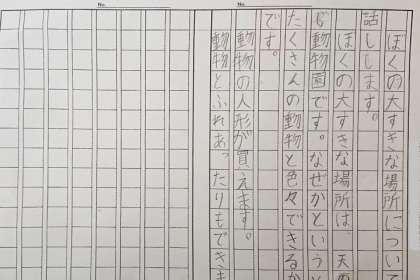 No.
No.
ぼくの大すきな場所について
話しします。
ぼくの大すきな場所は、天
じ動物園です。なぜかという
たくさんの動物と色々できるか
です。
動物の人形が買えます。
動物とふれあったりもできま